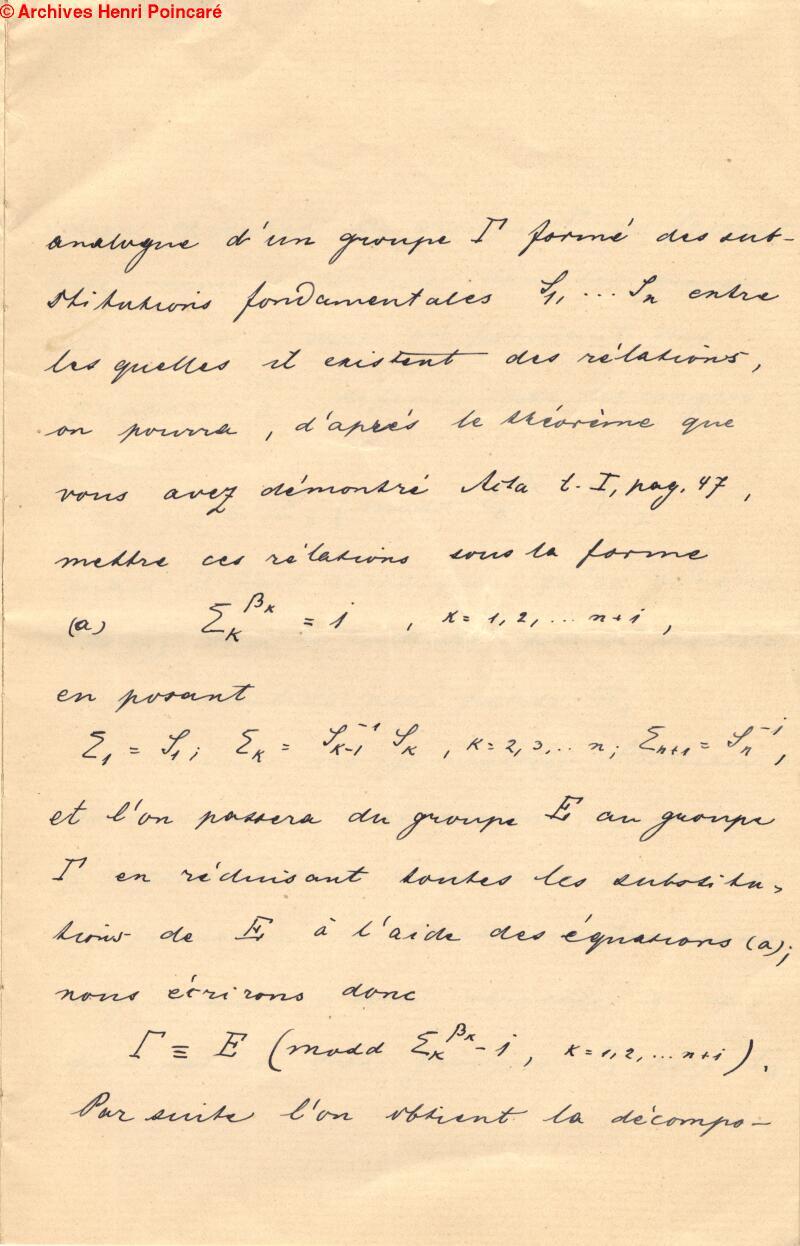 © Archives Henri Poincaré
analogue d'un groupe Γ formé des sub-
stitutions fondamentales S₁, ... Sₙ entre
les quelles il existent des rélations,
on pourra, d'aprés le théorème que
vous avez démontré Acta t. I, pag. 47,
mettre ces rélations sous la forme
(a) Σ_κ^{β_κ} = 1, κ = 1, 2, ... n+1,
en posant
Σ₁ = S₁; Σ_κ = S_{κ-1}^{-1} S_κ, κ = 2, 3, .. n; Σ_{n+1} = S_n^{-1},
et l'on passera du groupe E au groupe
Γ en réduisant toutes les substitu-
tions de E à l'aide des équations (a);
nous écrirons donc
Γ ≡ E (modd Σ_κ^{β_κ} - 1, κ = 1, 2, ... n+1).
Par suite l'on obtient la décompo-